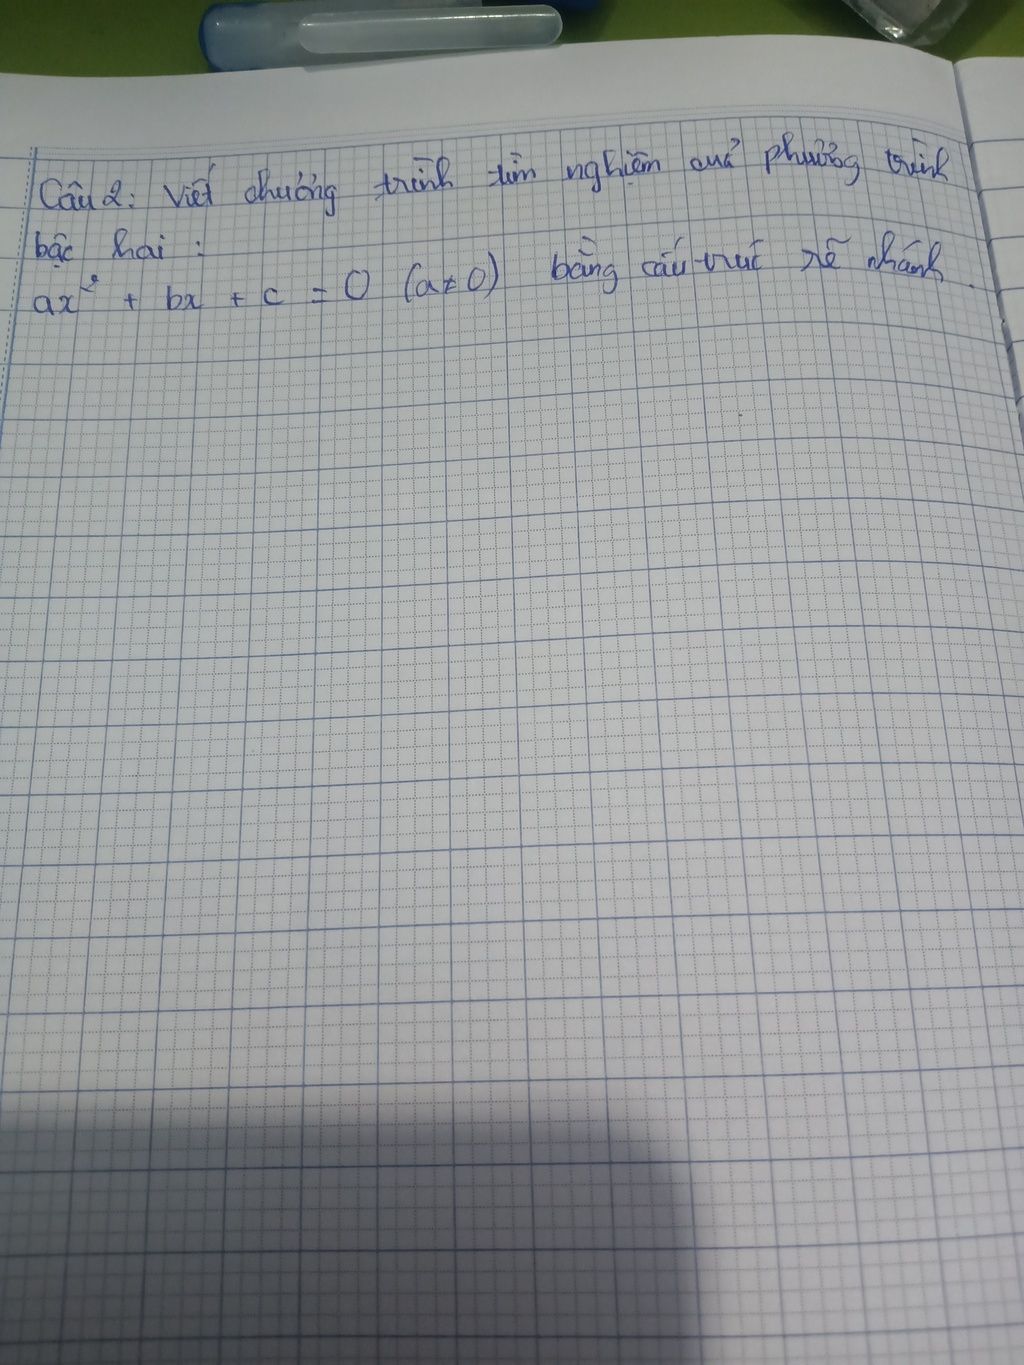 Câu 2: Viết chương trình tìm nghiệm của phương trình
bậc hai :
ax² + bx + c = 0 (a≠0) bằng cấu trúc rẽ nhánh.